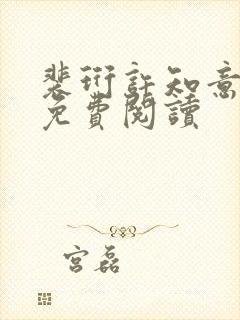 裴衍許知意
免費閱讀
宮磊